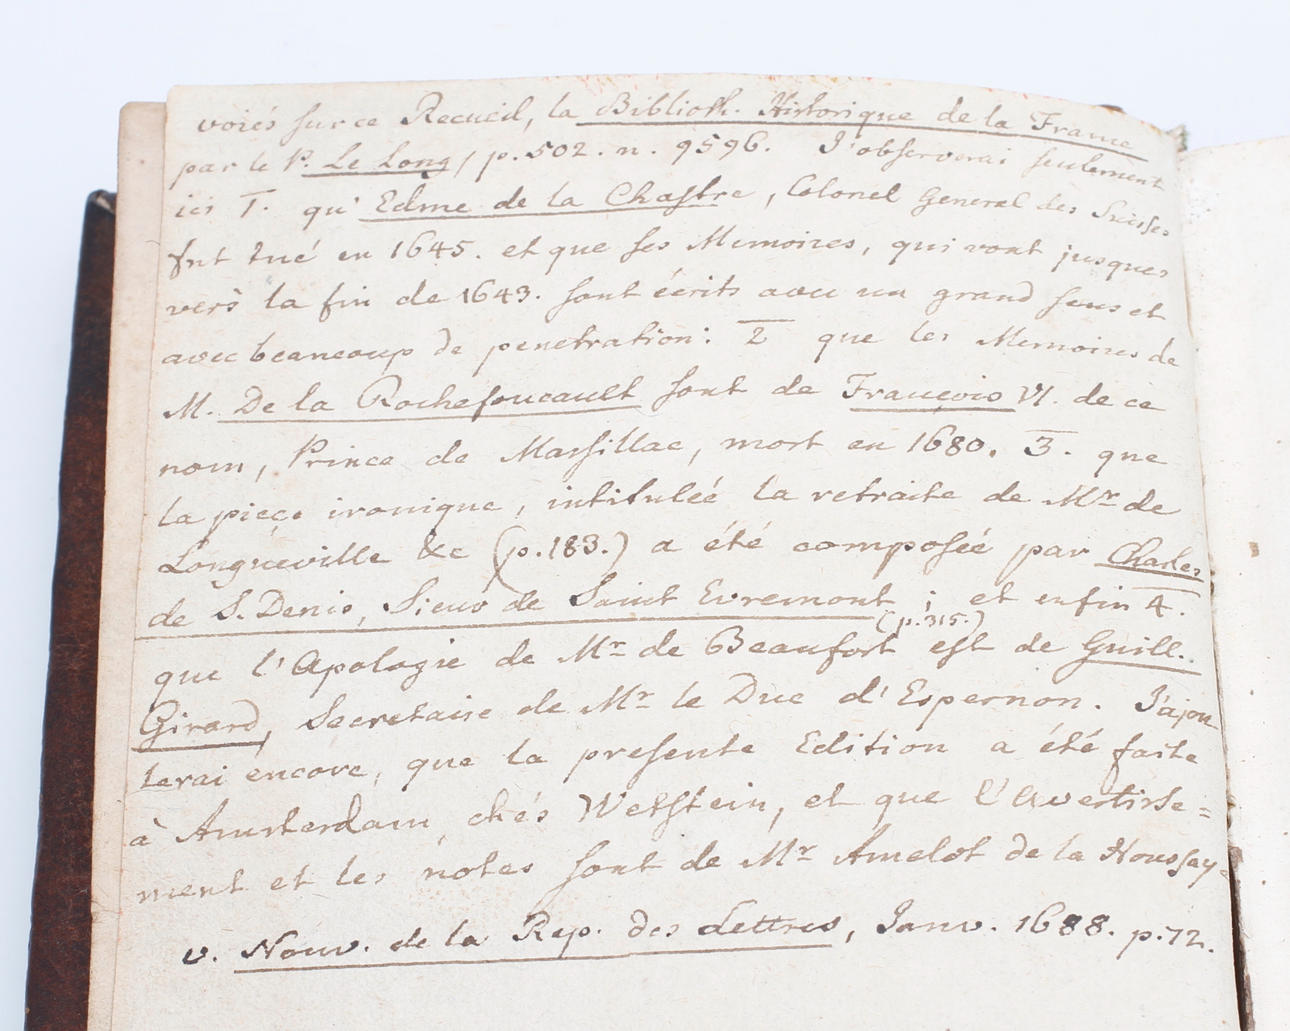 voiés sur ce Recueil, la Biblioth. Historique de la France
par le P. Le Long, p. 502. n. 9596. J'observerai seulement
ici 1. qu'Edme de la Chastre, Colonel General des Suisses
fut tué en 1645. et que ses Memoires, qui vont jusques
vers la fin de 1643. sont écrits avec un grand sens et
avec beaucoup de penetration: 2 que les Memoires de
M. De la Rochefoucault sont de François VI. de ce
nom, Prince de Marsillac, mort en 1680. 3. que
la pieçe ironique, intituleé la retraite de Mr de
Longueville &c (p. 183.) a été composeé par Charles
de S. Denis, Sieur de Saint Evremont; et enfin 4.
(p. 315.)
que l'Apologie de Mr de Beaufort est de Guill.
Girard, Secretaire de Mr le Duc d'Espernon. J'ajou
terai encore, que la presente Edition a été faite
à Amsterdam, chés Wetstein, et que l'Avertisse=
ment et les notes sont de Mr Amelot de la Houssay=
v. Nouv. de la Rep. des Lettres, Janv. 1688. p. 72.